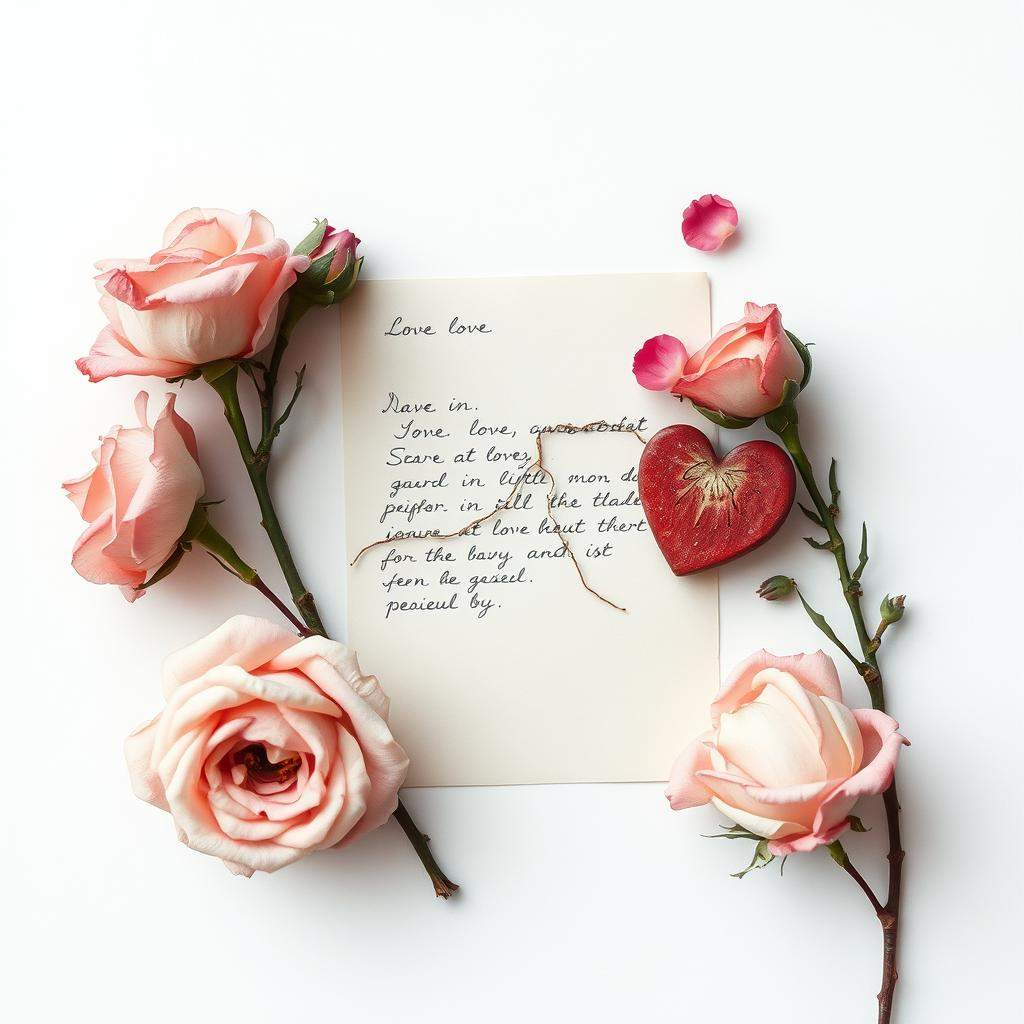 Love love
Dave in.
Love love,
Scare at love,
gaard in little mon do
peifor. in all the tlade
at love heut thert
for the bavy and ist
feen he gesed.
pesieul by.